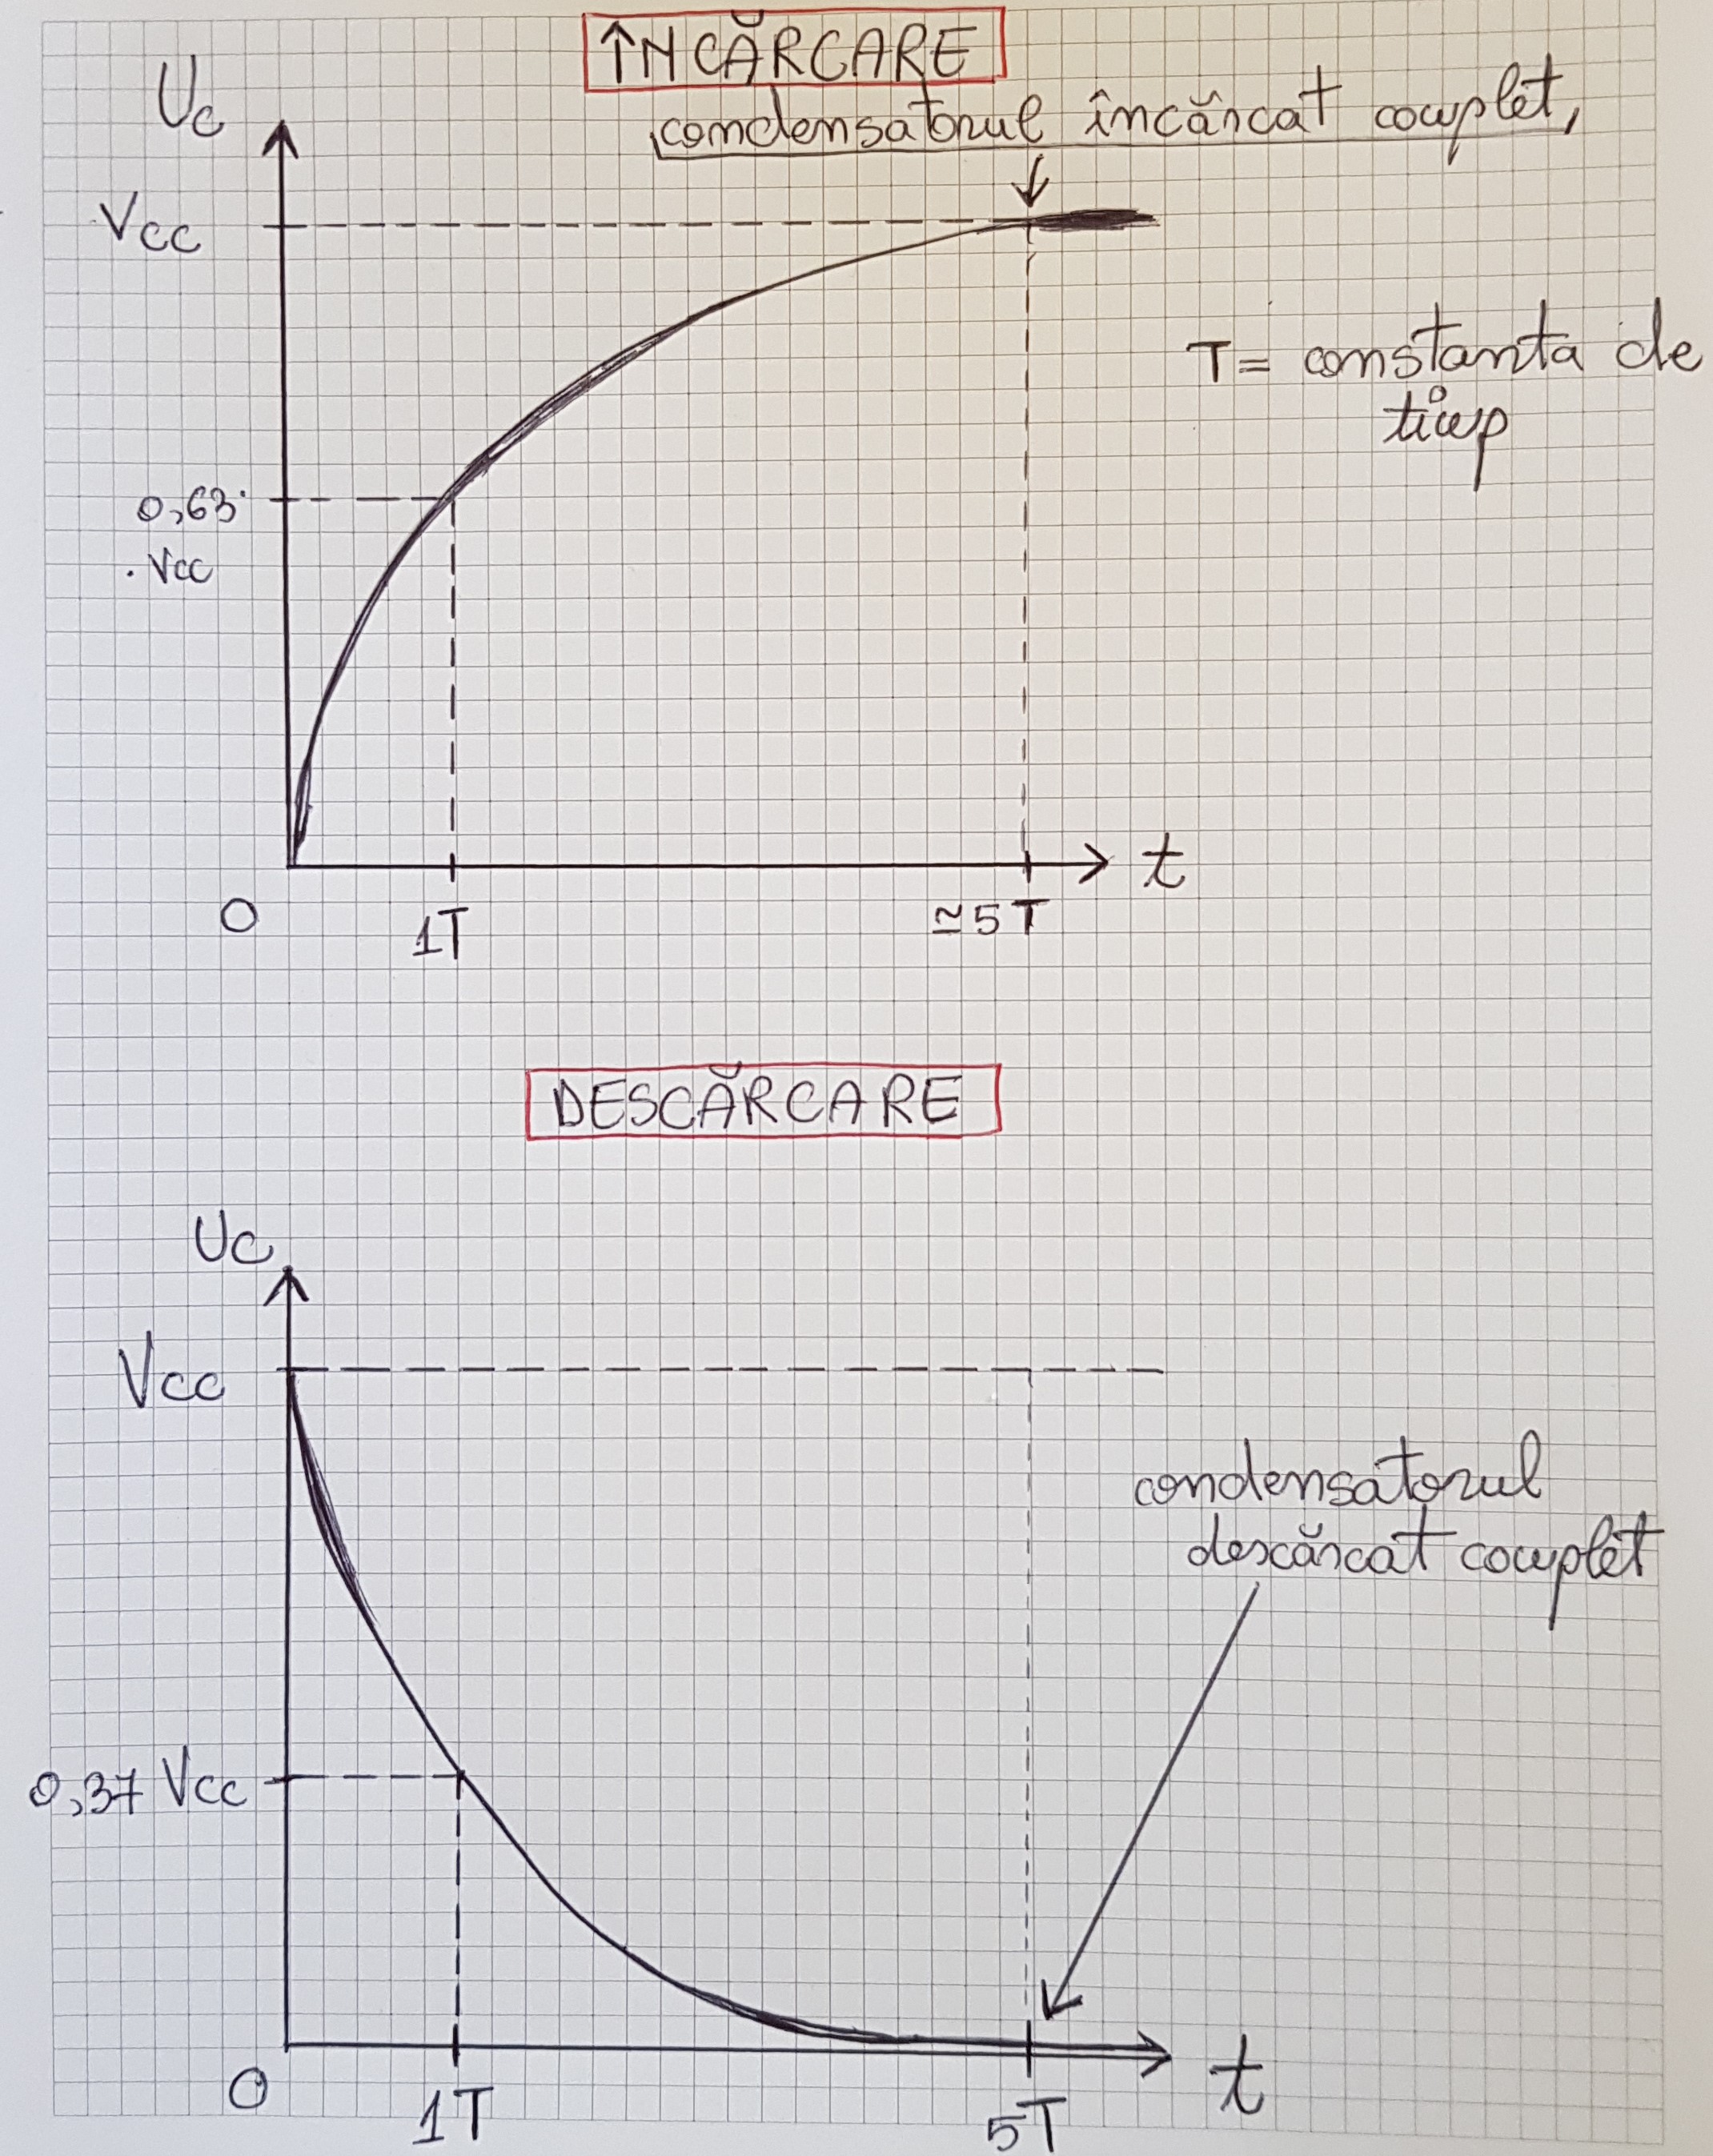 ÎNCĂRCARE
Uc
condensatorul încărcat complet
Vcc
T = constanta de
timp
0,63
. Vcc
t
0
1T
≃5T
DESCĂRCARE
Uc
Vcc
condensatorul
descărcat complet
0,37 Vcc
0
1T
5T
t